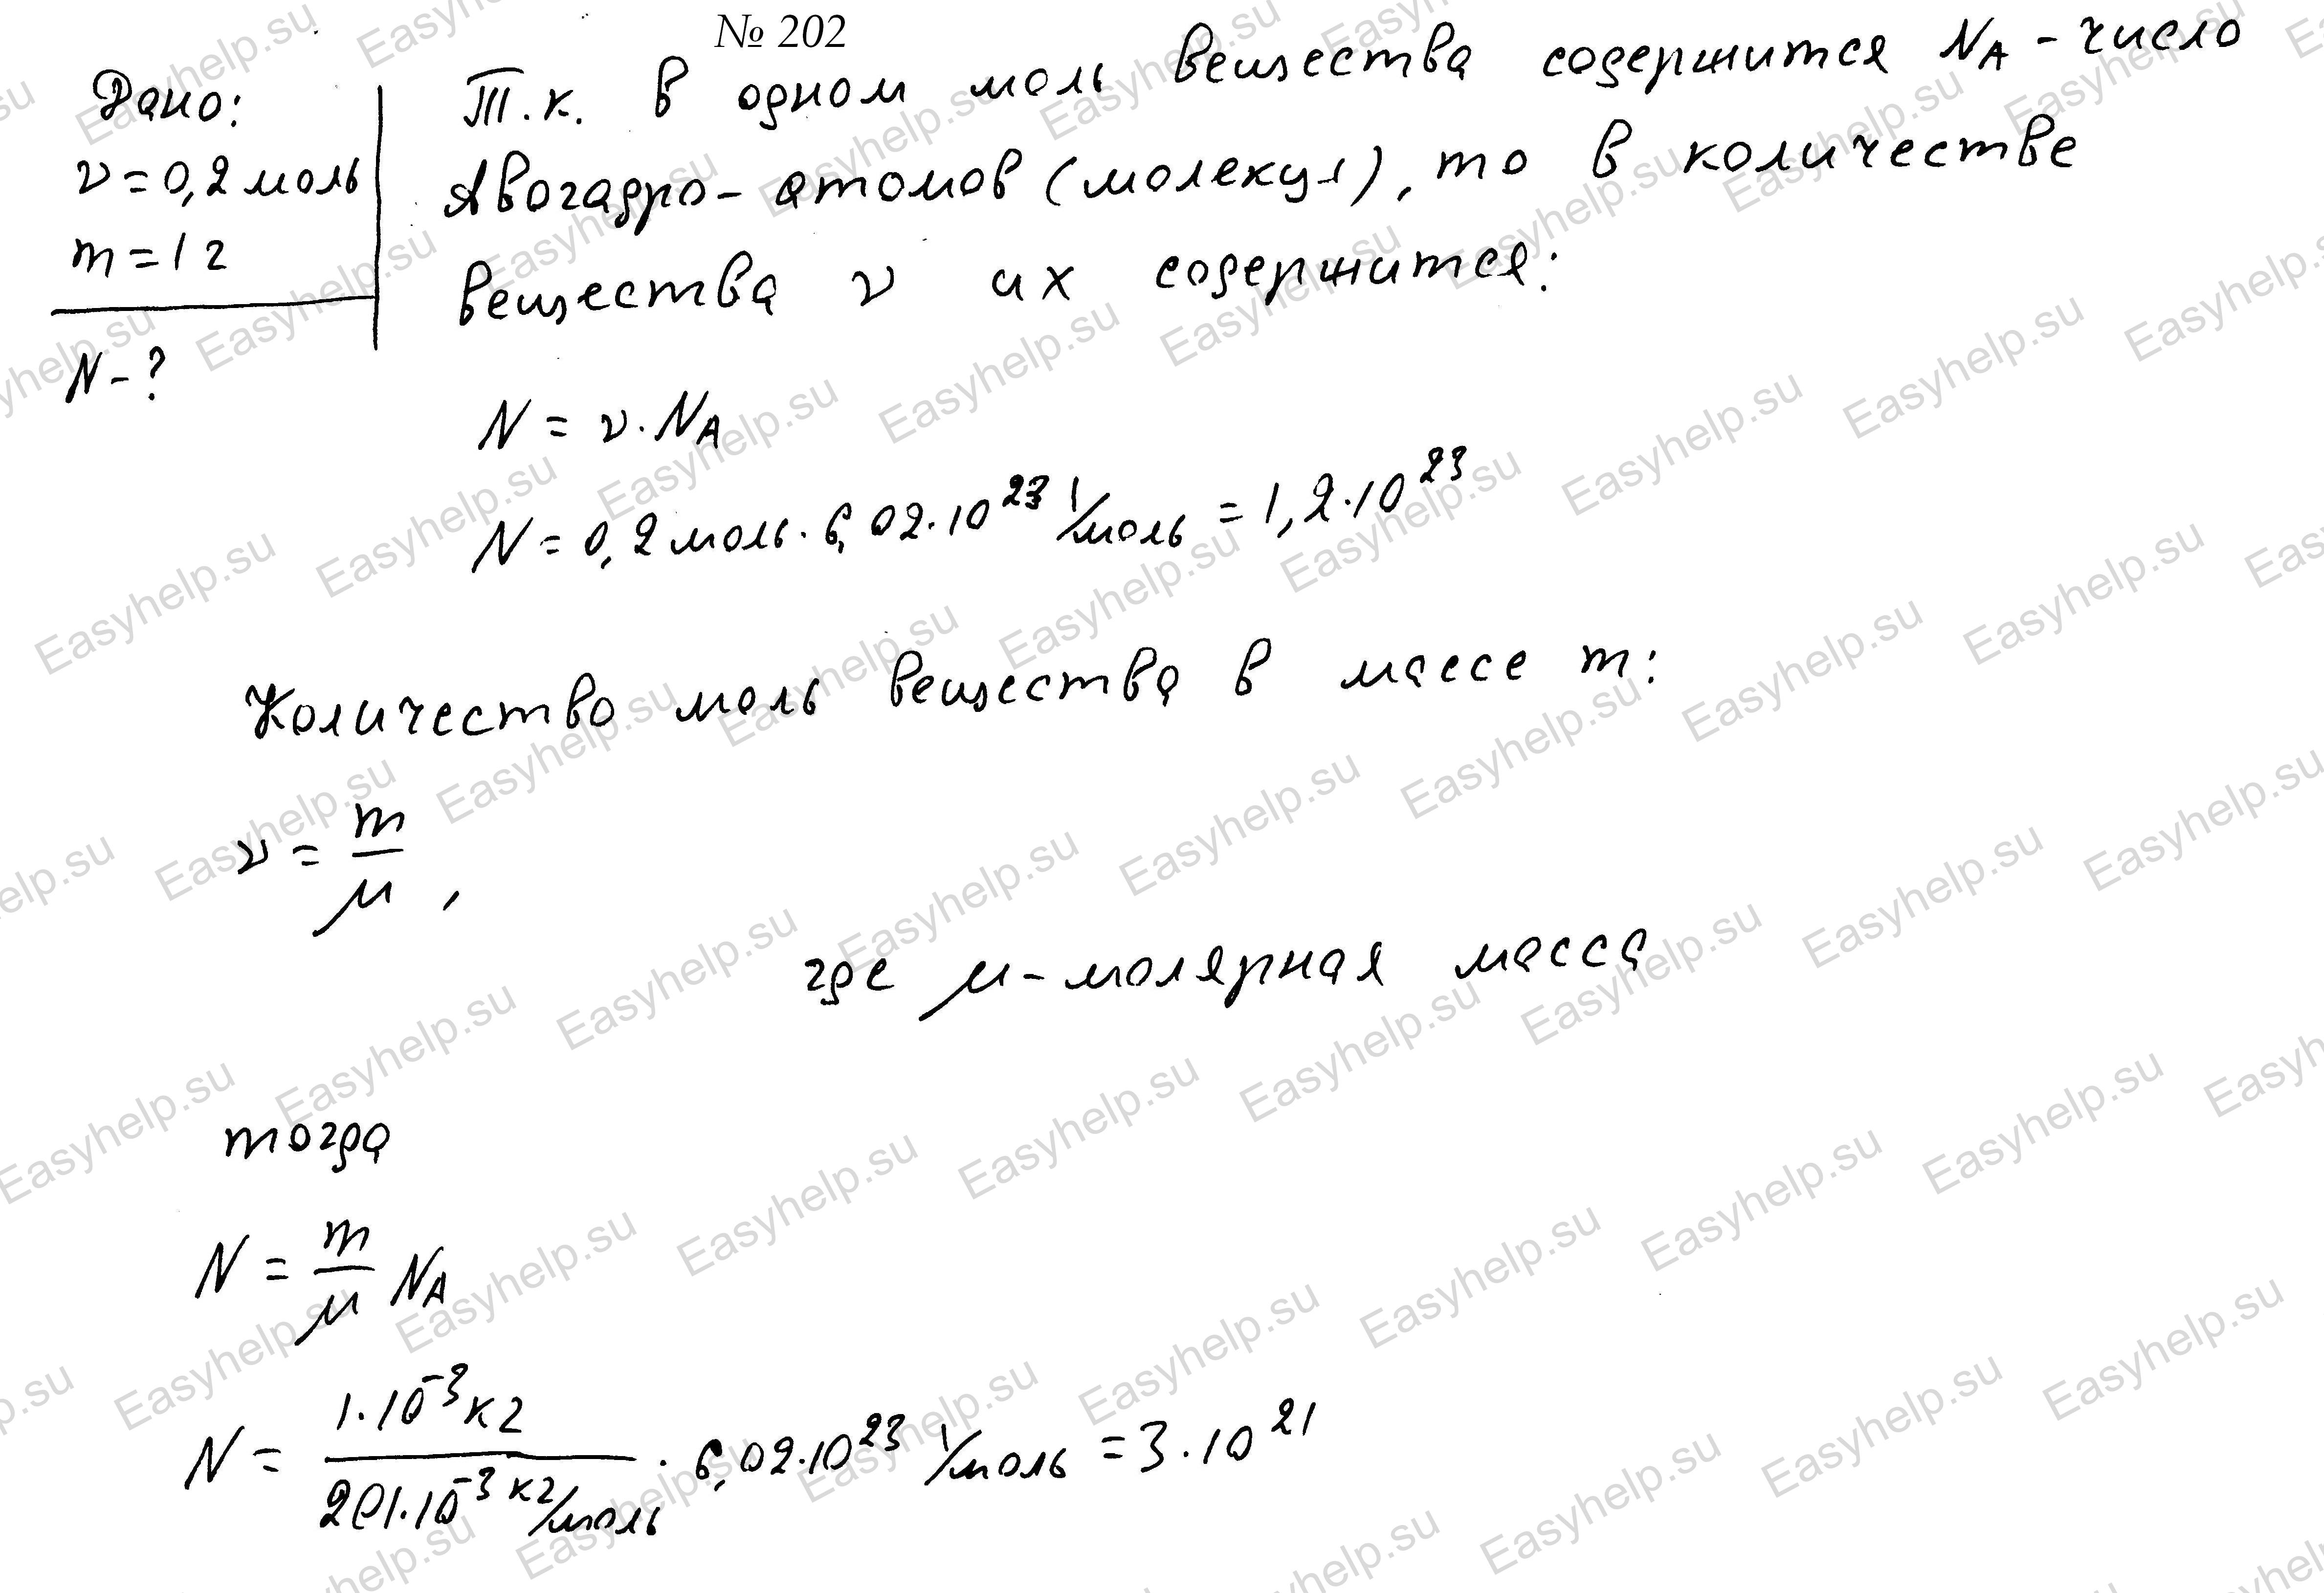 № 202
Дано:
ν = 0,2 моль
m = 1 г
N - ?
Т.к. в одном моль вещества содержится NA - число
Авогадро - атомов (молекул), то в количестве
вещества ν их содержится:
N = ν · NA
N = 0,2 моль · 6,02 · 10²³ 1/моль = 1,2 · 10²³
Количество моль вещества в массе m:
ν = m/μ ,
где μ - молярная масса
тогда
N = m/μ NA
N = 1·10⁻³ кг / 201·10⁻³ кг/моль · 6,02·10²³ 1/моль = 3·10²¹
Easyhelp.su